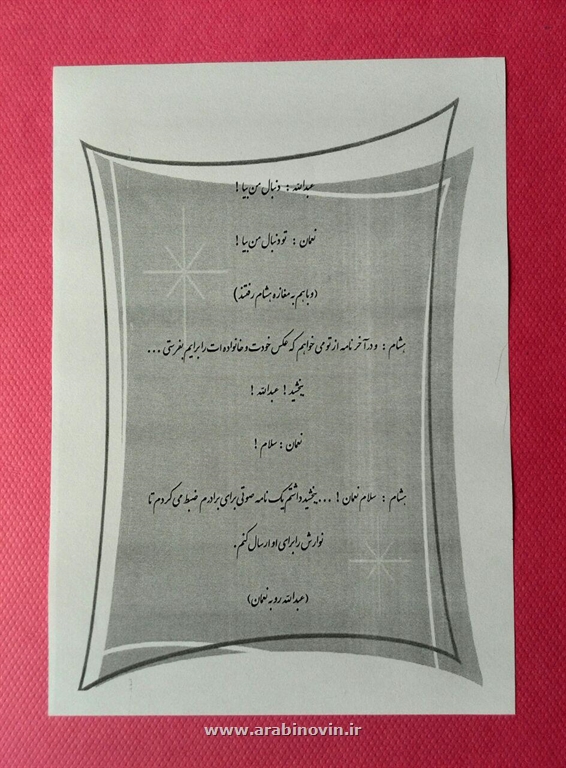 عبدالله : دنبال من بیا !
نعمان : تو دنبال من بیا !
(و با هم به مغازه هشام رفتند)
هشام : و در آخر نامه از تو می خواهم که عکس خودت و خانواده ات را برایم بفرستی ...
ببخشید ! عبدالله !
نعمان : سلام !
هشام : سلام نعمان ! ... ببخشید داشتم یک نامه صوتی برای برادرم ضبط می کردم تا
نوارش را برای او ارسال کنم.
(عبدالله رو به نعمان)
www.arabinovin.ir